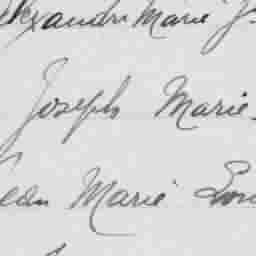 Alexandre Marie J
Joseph Marie
Jean Marie Lou